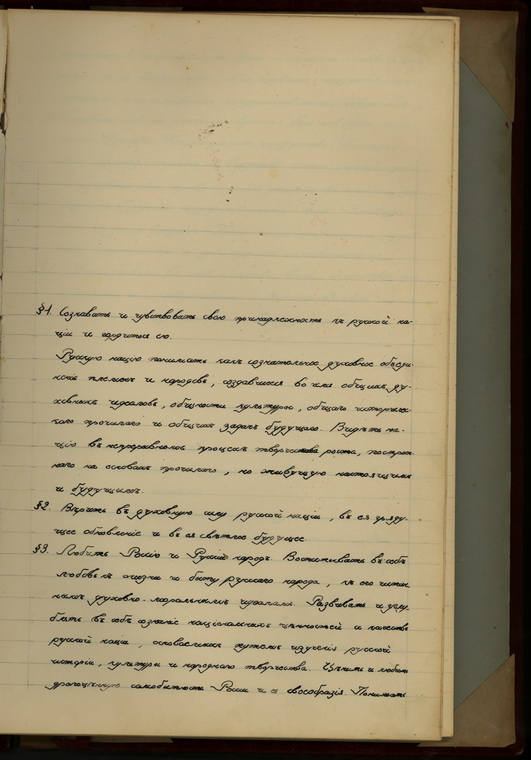 §1. Сознавать и чувствовать свою принадлежность къ русской на-
ціи и гордиться ею.
Русскую націю понимать какъ сознательное духовное объеди-
неніе племенъ и народовъ, создавшееся во имя общихъ ду-
ховныхъ идеаловъ, общности культуры, общаго историчес-
каго прошлаго и общихъ задачъ будущаго. Видѣть на-
цію въ непрерывномъ процессѣ творчества, роста, построен-
наго на основахъ прошлаго, но живущую настоящимъ
и будущимъ.
§2. Вѣрить въ духовную силу русской націи, въ ея гряду-
щее обновленіе и въ ея свѣтлое будущее.
§3. Любить Россію и Русскій народъ. Воспитывать въ себѣ
любовь къ жизни и быту русскаго народа, къ его истин-
нымъ духовно-моральнымъ идеаламъ. Развивать и углу-
блять въ себѣ сознаніе національныхъ цѣнностей и качествъ
русской націи, основательнымъ путемъ изученія русской
исторіи, культуры и народнаго творчества. Цѣнить и любить
драгоцѣнную самобытность Россіи и ея своеобразіе. Понимать